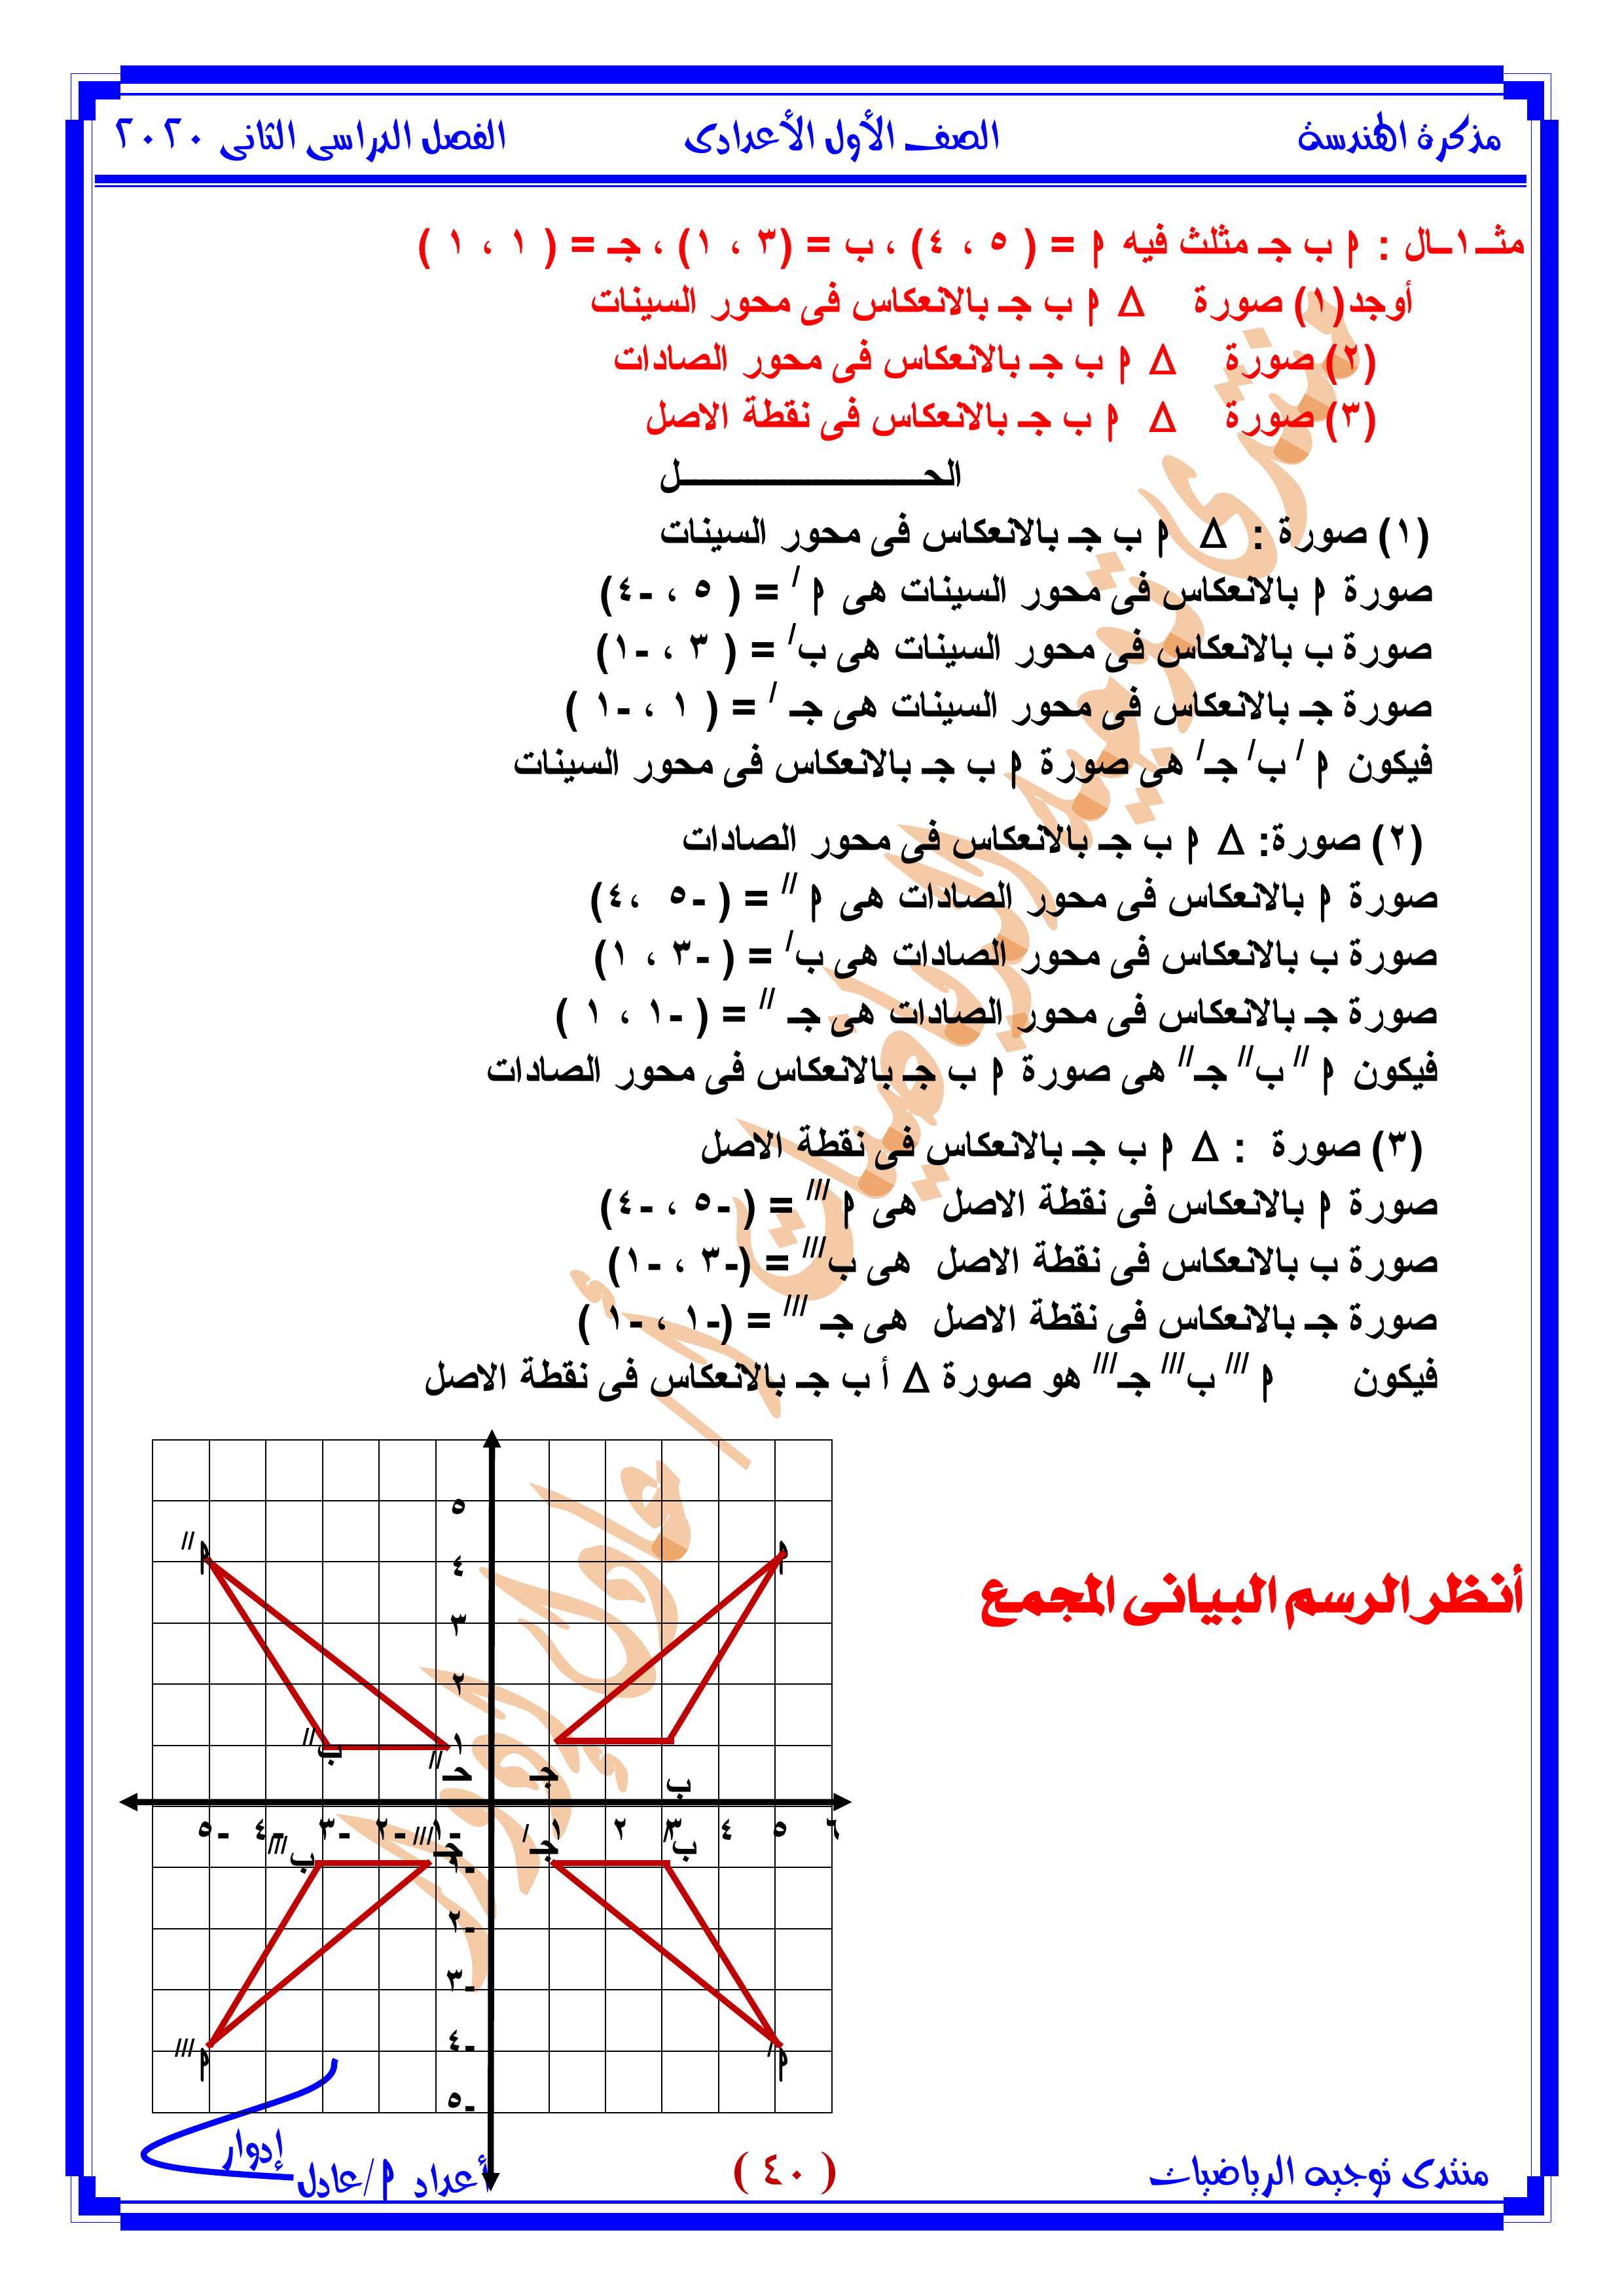 مذكرة الهندسة الصف الأول الأعدادى الفصل الدراسى الثانى ٢٠٢٠
مثـ١ـال : م ب جـ مثلث فيه م = ( ٥ ، ٤) ، ب = (٣ ، ١) ، جـ = ( ١ ، ١ )
أوجد(١) صورة Δ م ب جـ بالانعكاس فى محور السينات
(٢) صورة Δ م ب جـ بالانعكاس فى محور الصادات
(٣) صورة Δ م ب جـ بالانعكاس فى نقطة الاصل
الحــــــــــــــــــــل
(١) صورة : Δ م ب جـ بالانعكاس فى محور السينات
صورة م بالانعكاس فى محور السينات هى م / = ( ٥ ، -٤)
صورة ب بالانعكاس فى محور السينات هى ب/ = ( ٣ ، -١)
صورة جـ بالانعكاس فى محور السينات هى جـ / = ( ١ ، -١ )
فيكون م / ب/ جـ/ هى صورة م ب جـ بالانعكاس فى محور السينات
(٢) صورة: Δ م ب جـ بالانعكاس فى محور الصادات
صورة م بالانعكاس فى محور الصادات هى م // = ( -٥ ،٤)
صورة ب بالانعكاس فى محور الصادات هى ب/ = ( -٣ ، ١)
صورة جـ بالانعكاس فى محور الصادات هى جـ // = ( -١ ، ١ )
فيكون م // ب// جـ// هى صورة م ب جـ بالانعكاس فى محور الصادات
(٣) صورة : Δ م ب جـ بالانعكاس فى نقطة الاصل
صورة م بالانعكاس فى نقطة الاصل هى م /// = ( -٥ ، -٤)
صورة ب بالانعكاس فى نقطة الاصل هى ب/// = (-٣ ، -١)
صورة جـ بالانعكاس فى نقطة الاصل هى جـ /// = (-١ ، -١ )
فيكون م /// ب/// جـ/// هو صورة Δ أ ب جـ بالانعكاس فى نقطة الاصل
أنظر الرسم البيانى المجمع
٥
م م//
٤
٣
٢
١
ب//
جـ//
جـ
ب
-٥ -٤ -٣ -٢ -١ ١ ٢ ٣ ٤ ٥ ٦
ب/// جـ/// جـ/ ب/
-١
-٢
-٣
-٤
م/// م/
-٥
منتدى توجيه الرياضيات
( ٤٠ )
أعداد م/عادل إدوار
منتدى توجيه الرياضيات أ/ عادل إدوار